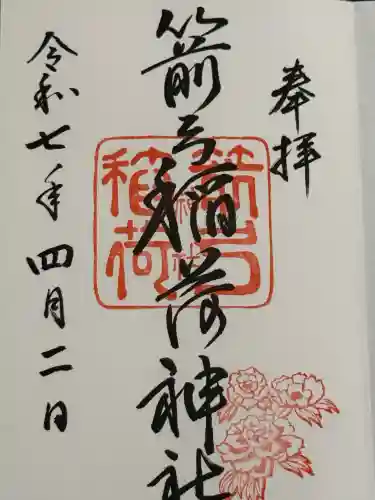 奉拝
箭弓稲荷神社
令和七年四月二日
箭弓稲荷神社